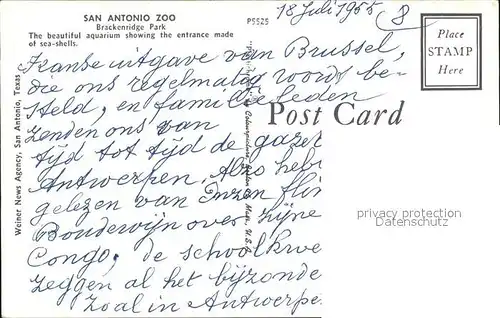 SAN ANTONIO ZOO
Brackenridge Park
The beautiful aquarium showing the entrance made
of sea-shells.
P5525
18 Juli 1955
8
Place
STAMP
Here
Post Card
Weiner News Agency, San Antonio, Texas
uitgave van Brussel,
die ons regelmatig wordt be-
steld, en familieleden
zenden ons van
tijd tot tijd de gazet
Antwerpen. Also heb
gelezen van Onzen
Boudewijn over zijne
Congo, de
zeggen al het bijzonde
Zoal in Antwerpe
privacy protection
Datenschutz